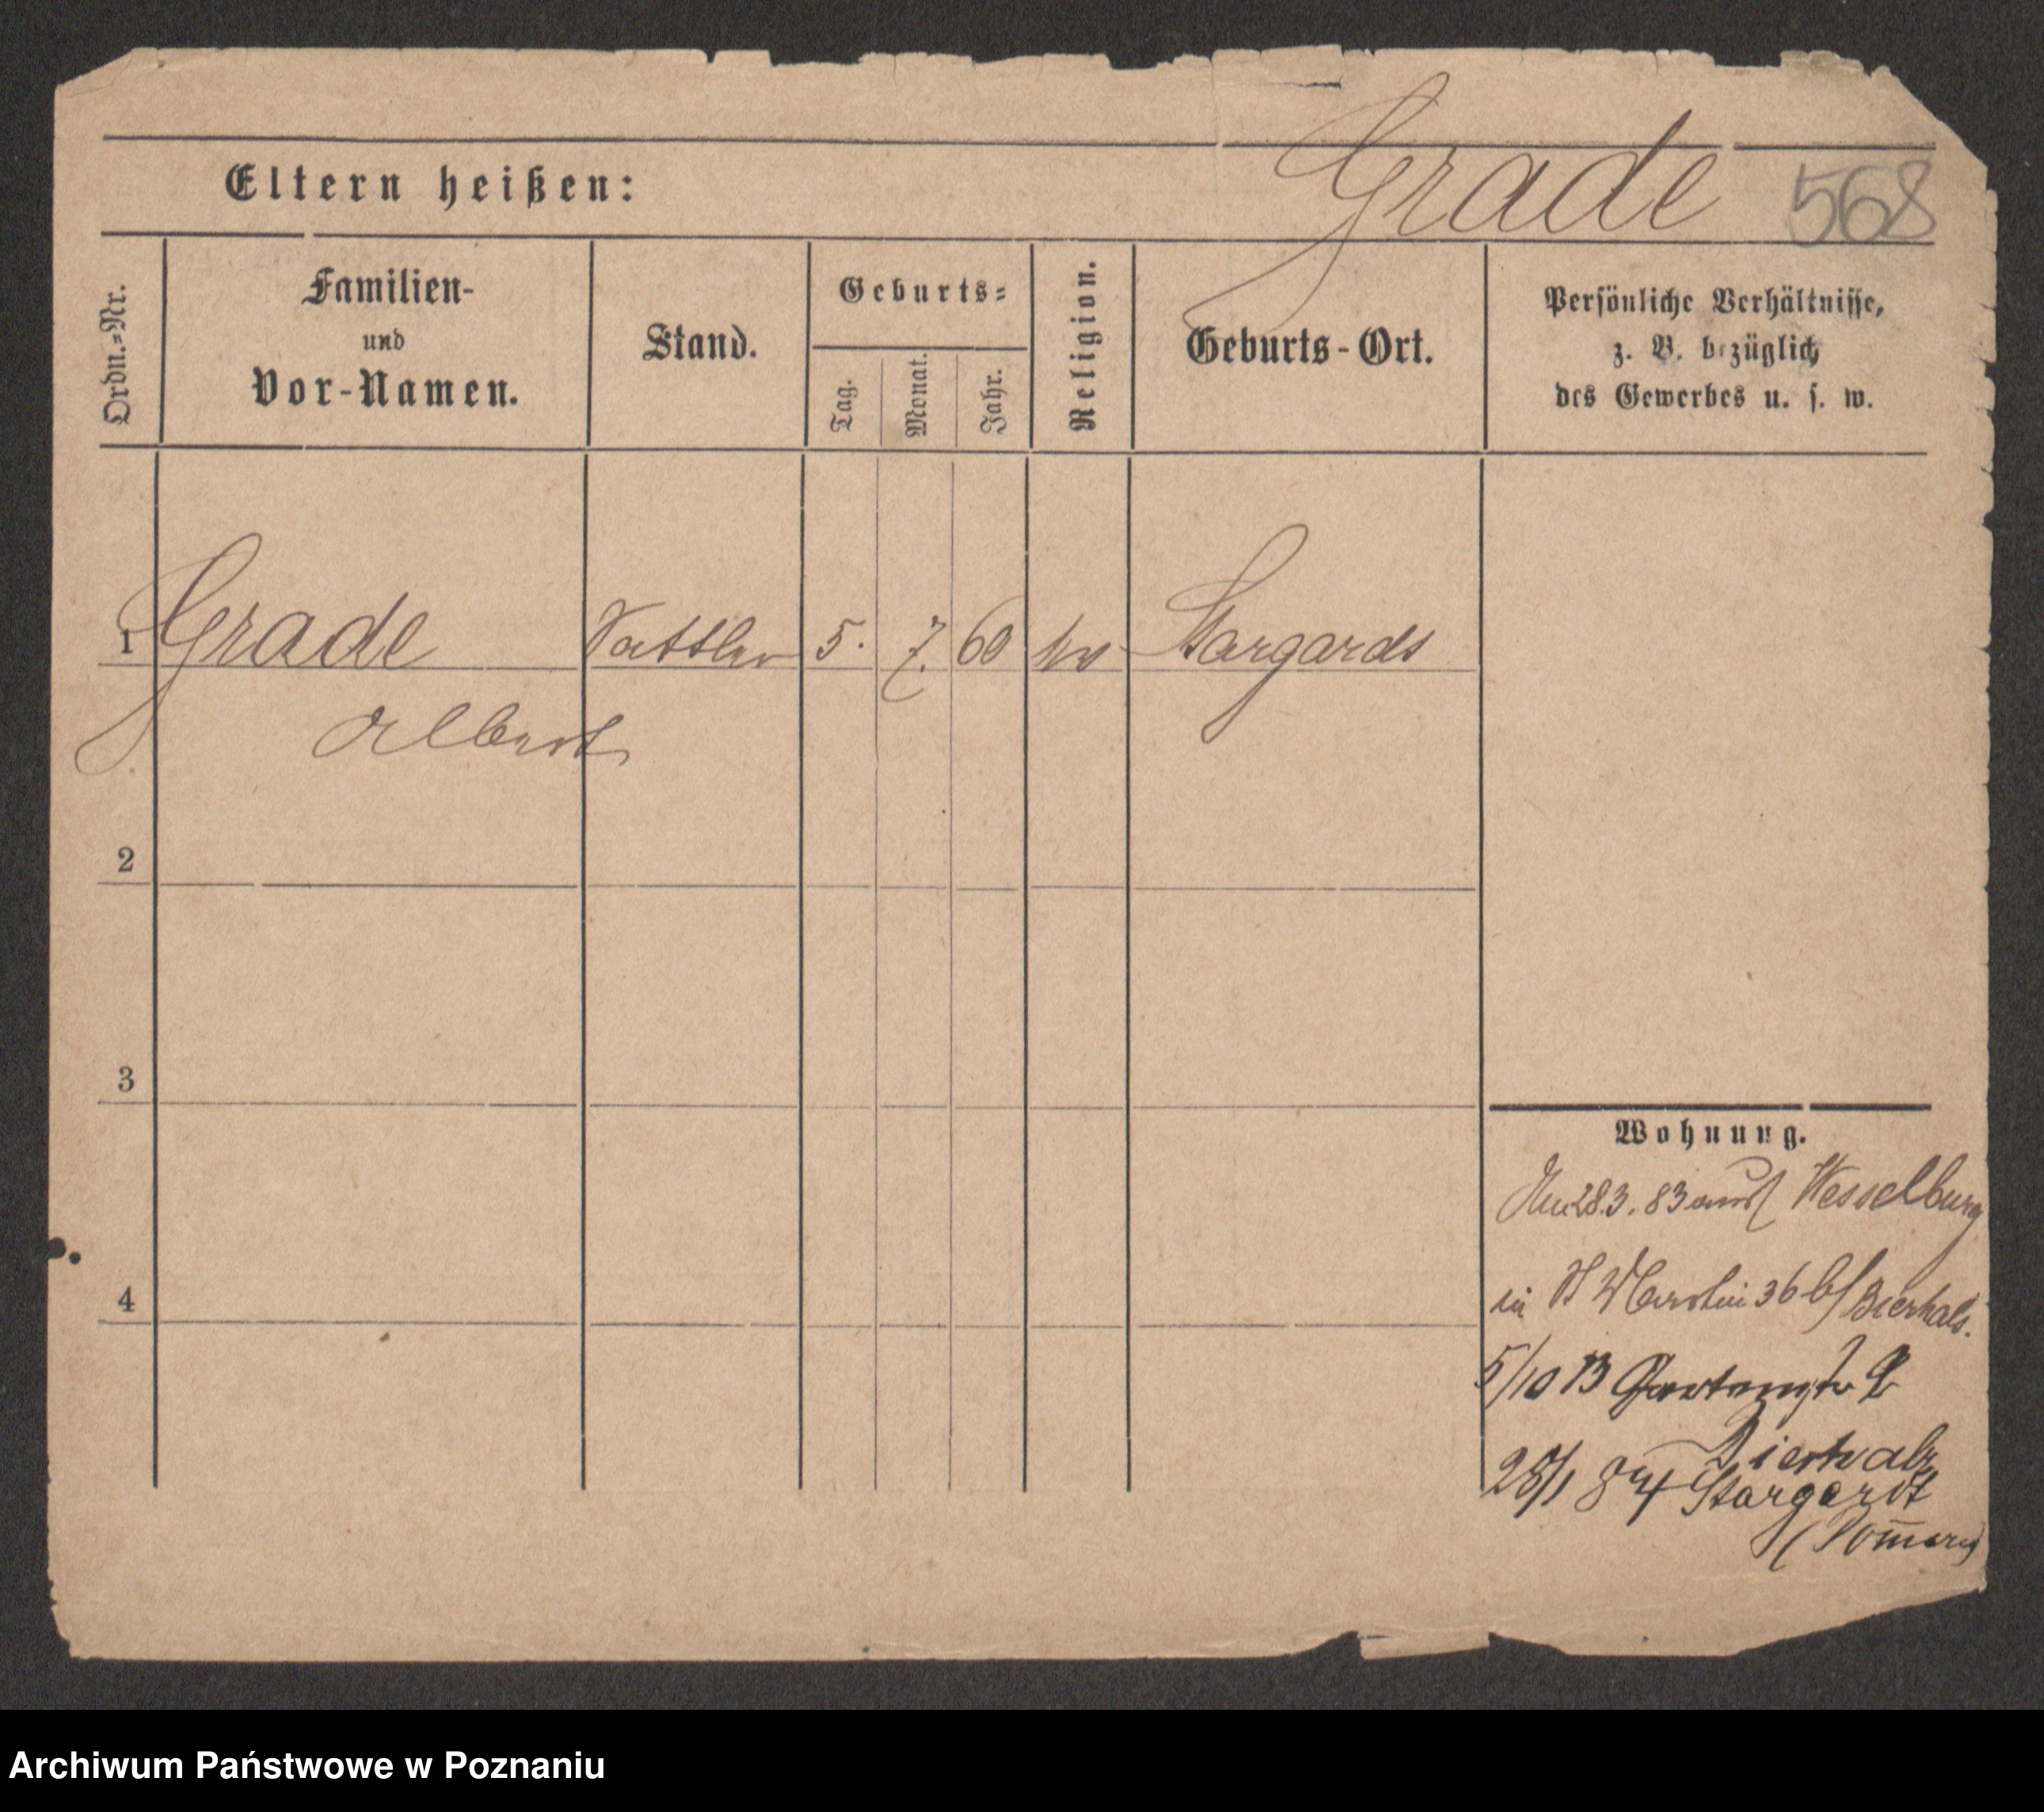 Grade 568
Eltern heißen:
Ordn.-Nr.
Familien-
und
Vor-Namen.
Stand.
Geburts-
Tag.
Monat.
Jahr.
Religion.
Geburts-Ort.
Persönliche Verhältnisse,
z. B. bezüglich
des Gewerbes u. s. w.
1 Grade Sattler 5. 7. 60 ev Stargardt
Albert
2
3
4
Wohnung.
28.3.83 aus Wesselburg
in St Martin 36 b/ Bierhals.
5/10 83 Gartenstr 2
Bierhals
28/1 84 Stargardt
(Pom̄ern)
Archiwum Państwowe w Poznaniu